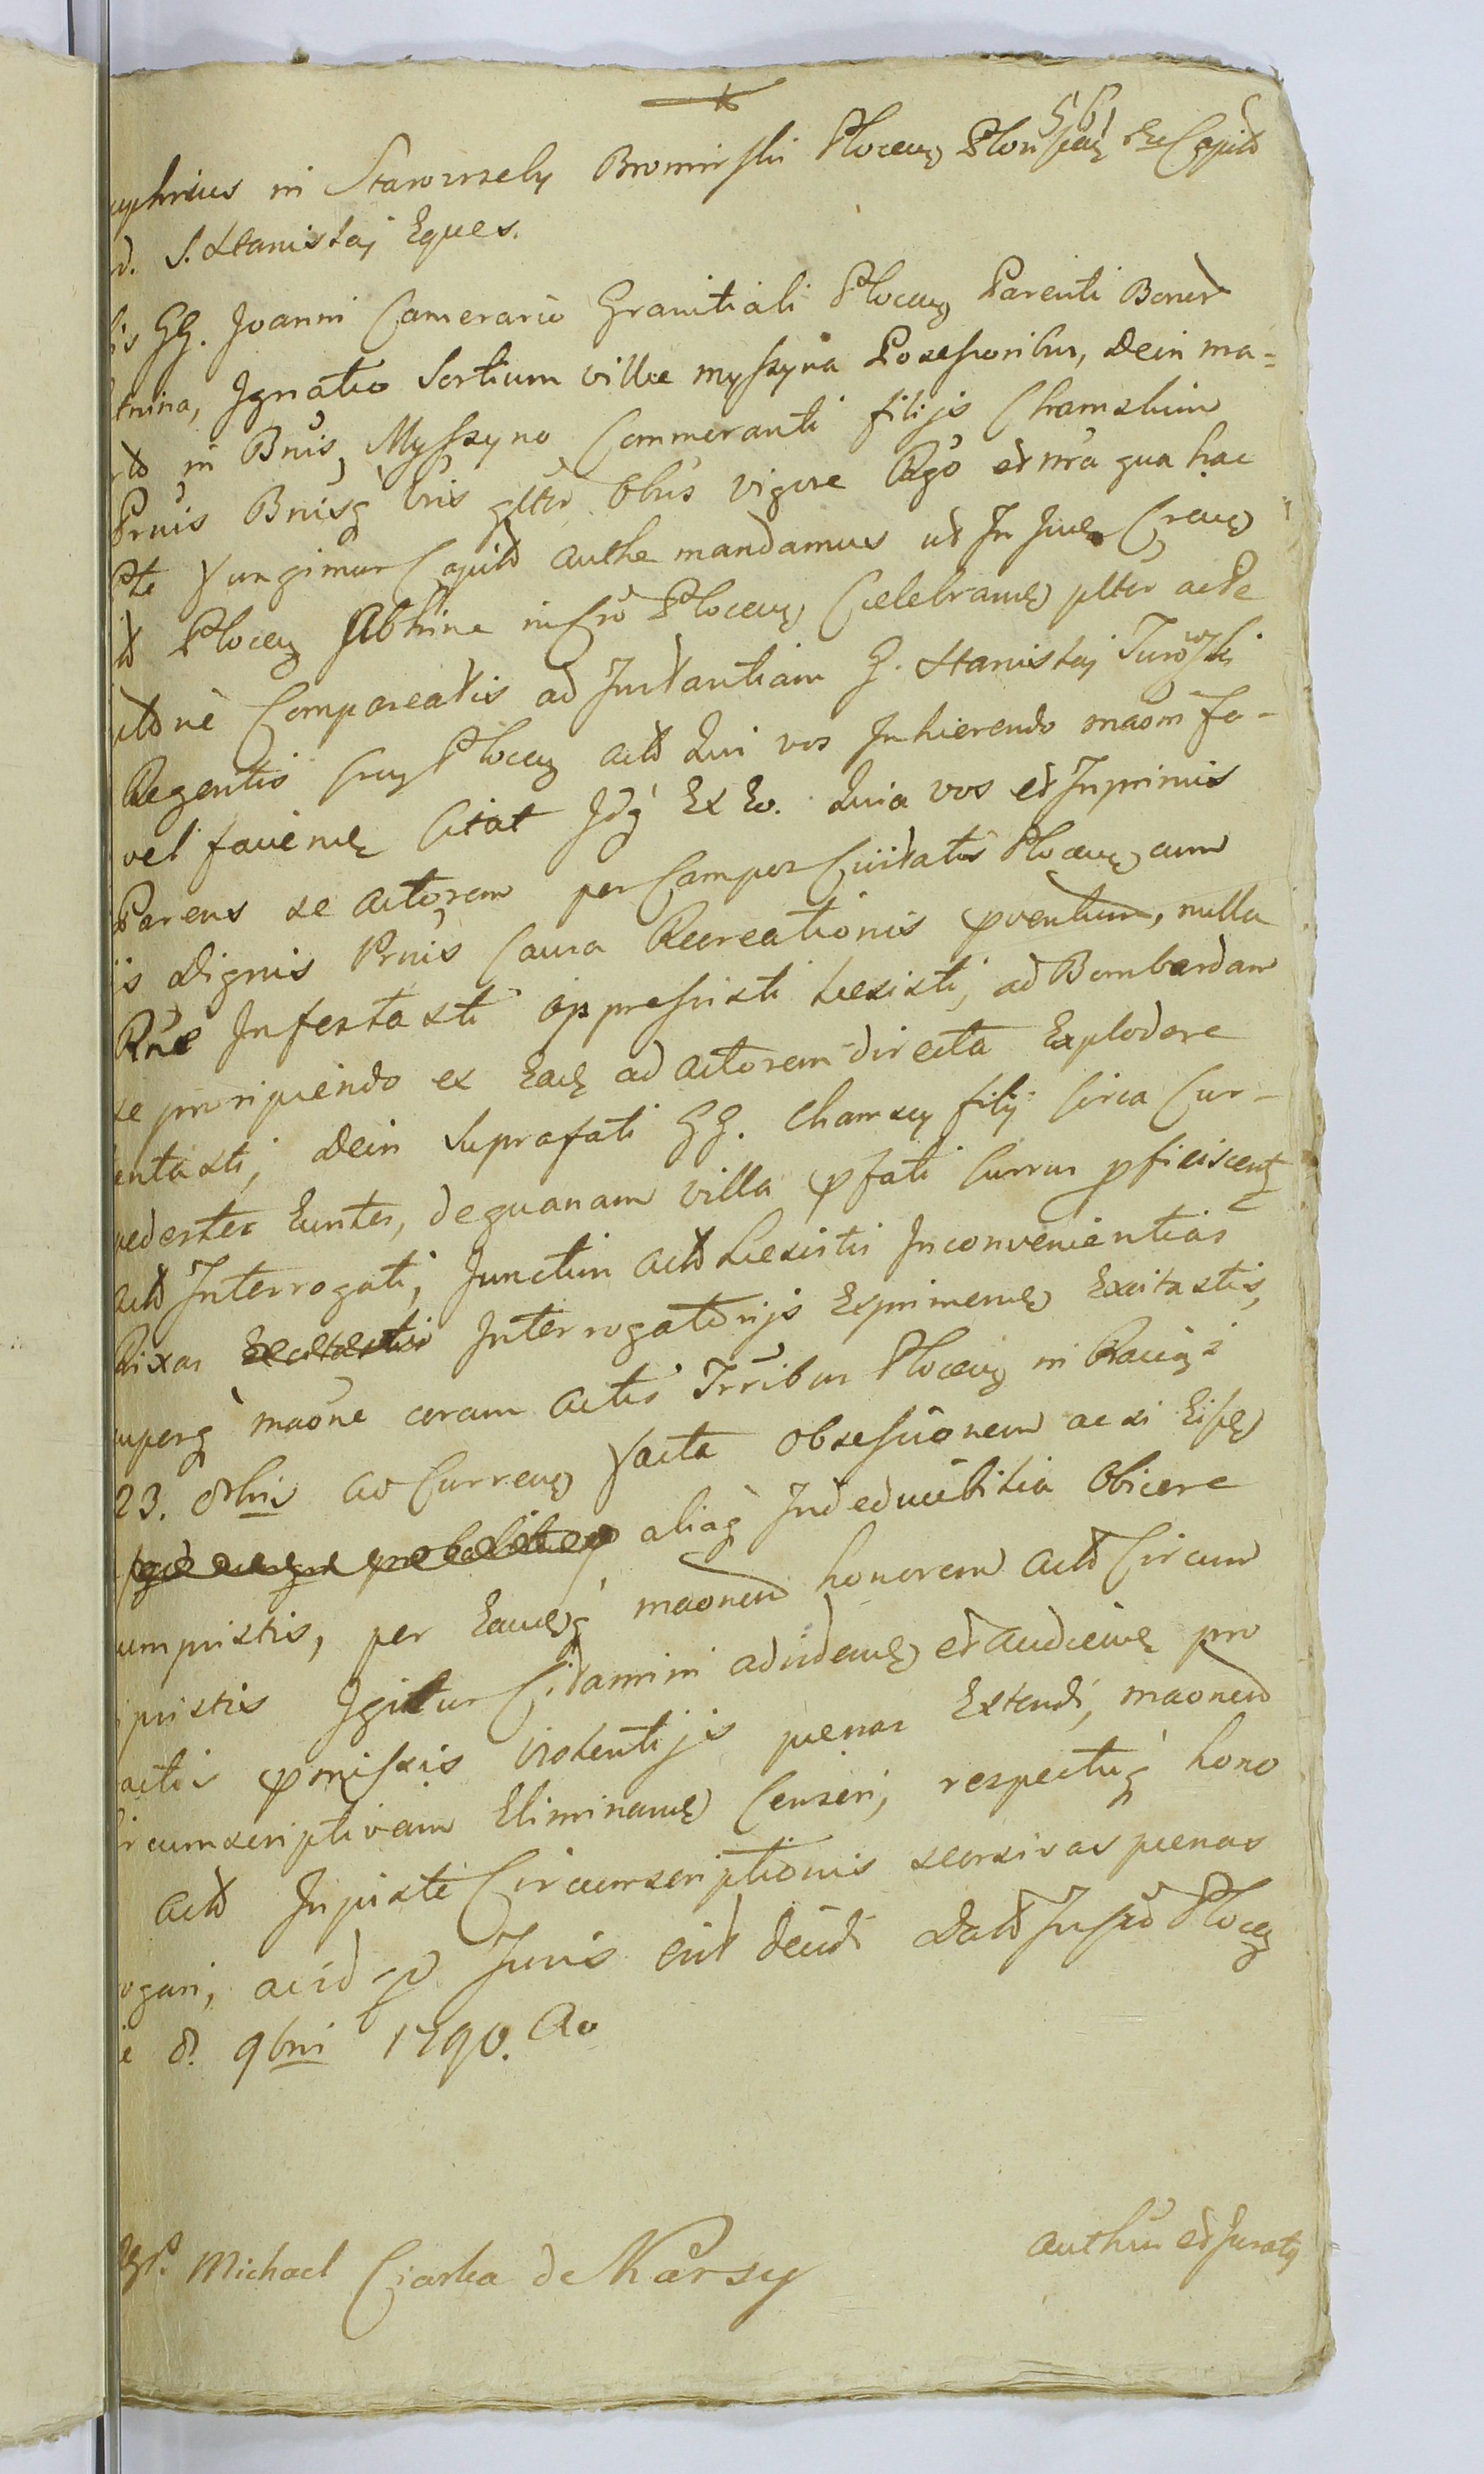 56
uphrius in Starorzeby Bromirski Plocens Plonscens Capit
d. S. Stanislai Eques.
is GG. Joanni Camerario Granitiali Plocens Parenti Bonor
tnina, Ignatio Sortium villae Myszyna Possessoribus, Dein ma=
in Bnis Myszyno Commoranti filijs Chamskim
Prnis Bnisq vris gltr Obus vigore Rgo et nra qua hac
Pte fungimur Capit authe mandamus ut In Jud Crens
Plocen Abhinc in Cro Plocens Celebrand pltr acte
ne Compareatis ad Instantiam G. Stanislai Turowski
Regentis Plocen act Qui vos Inhaerendo maom fa-
vel faciend Citat Idq Ex Eo. Quia vos et Inprimis
Parens se actorem per Campos Civitatis Plocens cum
is Dignis Prnis Causa Recreationis pventum, nulla
Rne Infestasti oppressisti Laesisti, ad Bombardam
se proripiendo ex Ead ad actorem directa Explodere
entasti, Dein Suprafati GG. Chamscy filij Circa Cur-
pedester Euntes, de quanam villa pfati Currus pficiscent
act Interrogati, Junctim act Laesistis Inconvenientias
Rixas Interrogatorijs Exprimend Excitastis,
uperq maone coram actis Trribus Plocens in Raciąż
23. 8bris ao Currens facta obsessionem ac si Eisd
aliaq Indeducibilia Obicere
umpsistis, per Eamdq maonem honorem act Circum
ipsistis Igitur Citamini ad vidend et audiend pro
actis pmissis violentijs poenas Extendi, maonem
ircumscriptivam Eliminand Censeri, respectuq hono
act Inpiste Circumscriptionis seorsivas poenas
ogari, ac id q Juris erit decidi Dat In Cro Plocen
e 8. 9bris 1790. Ao
Michael Ciarka de Karsy
authus et Juratg